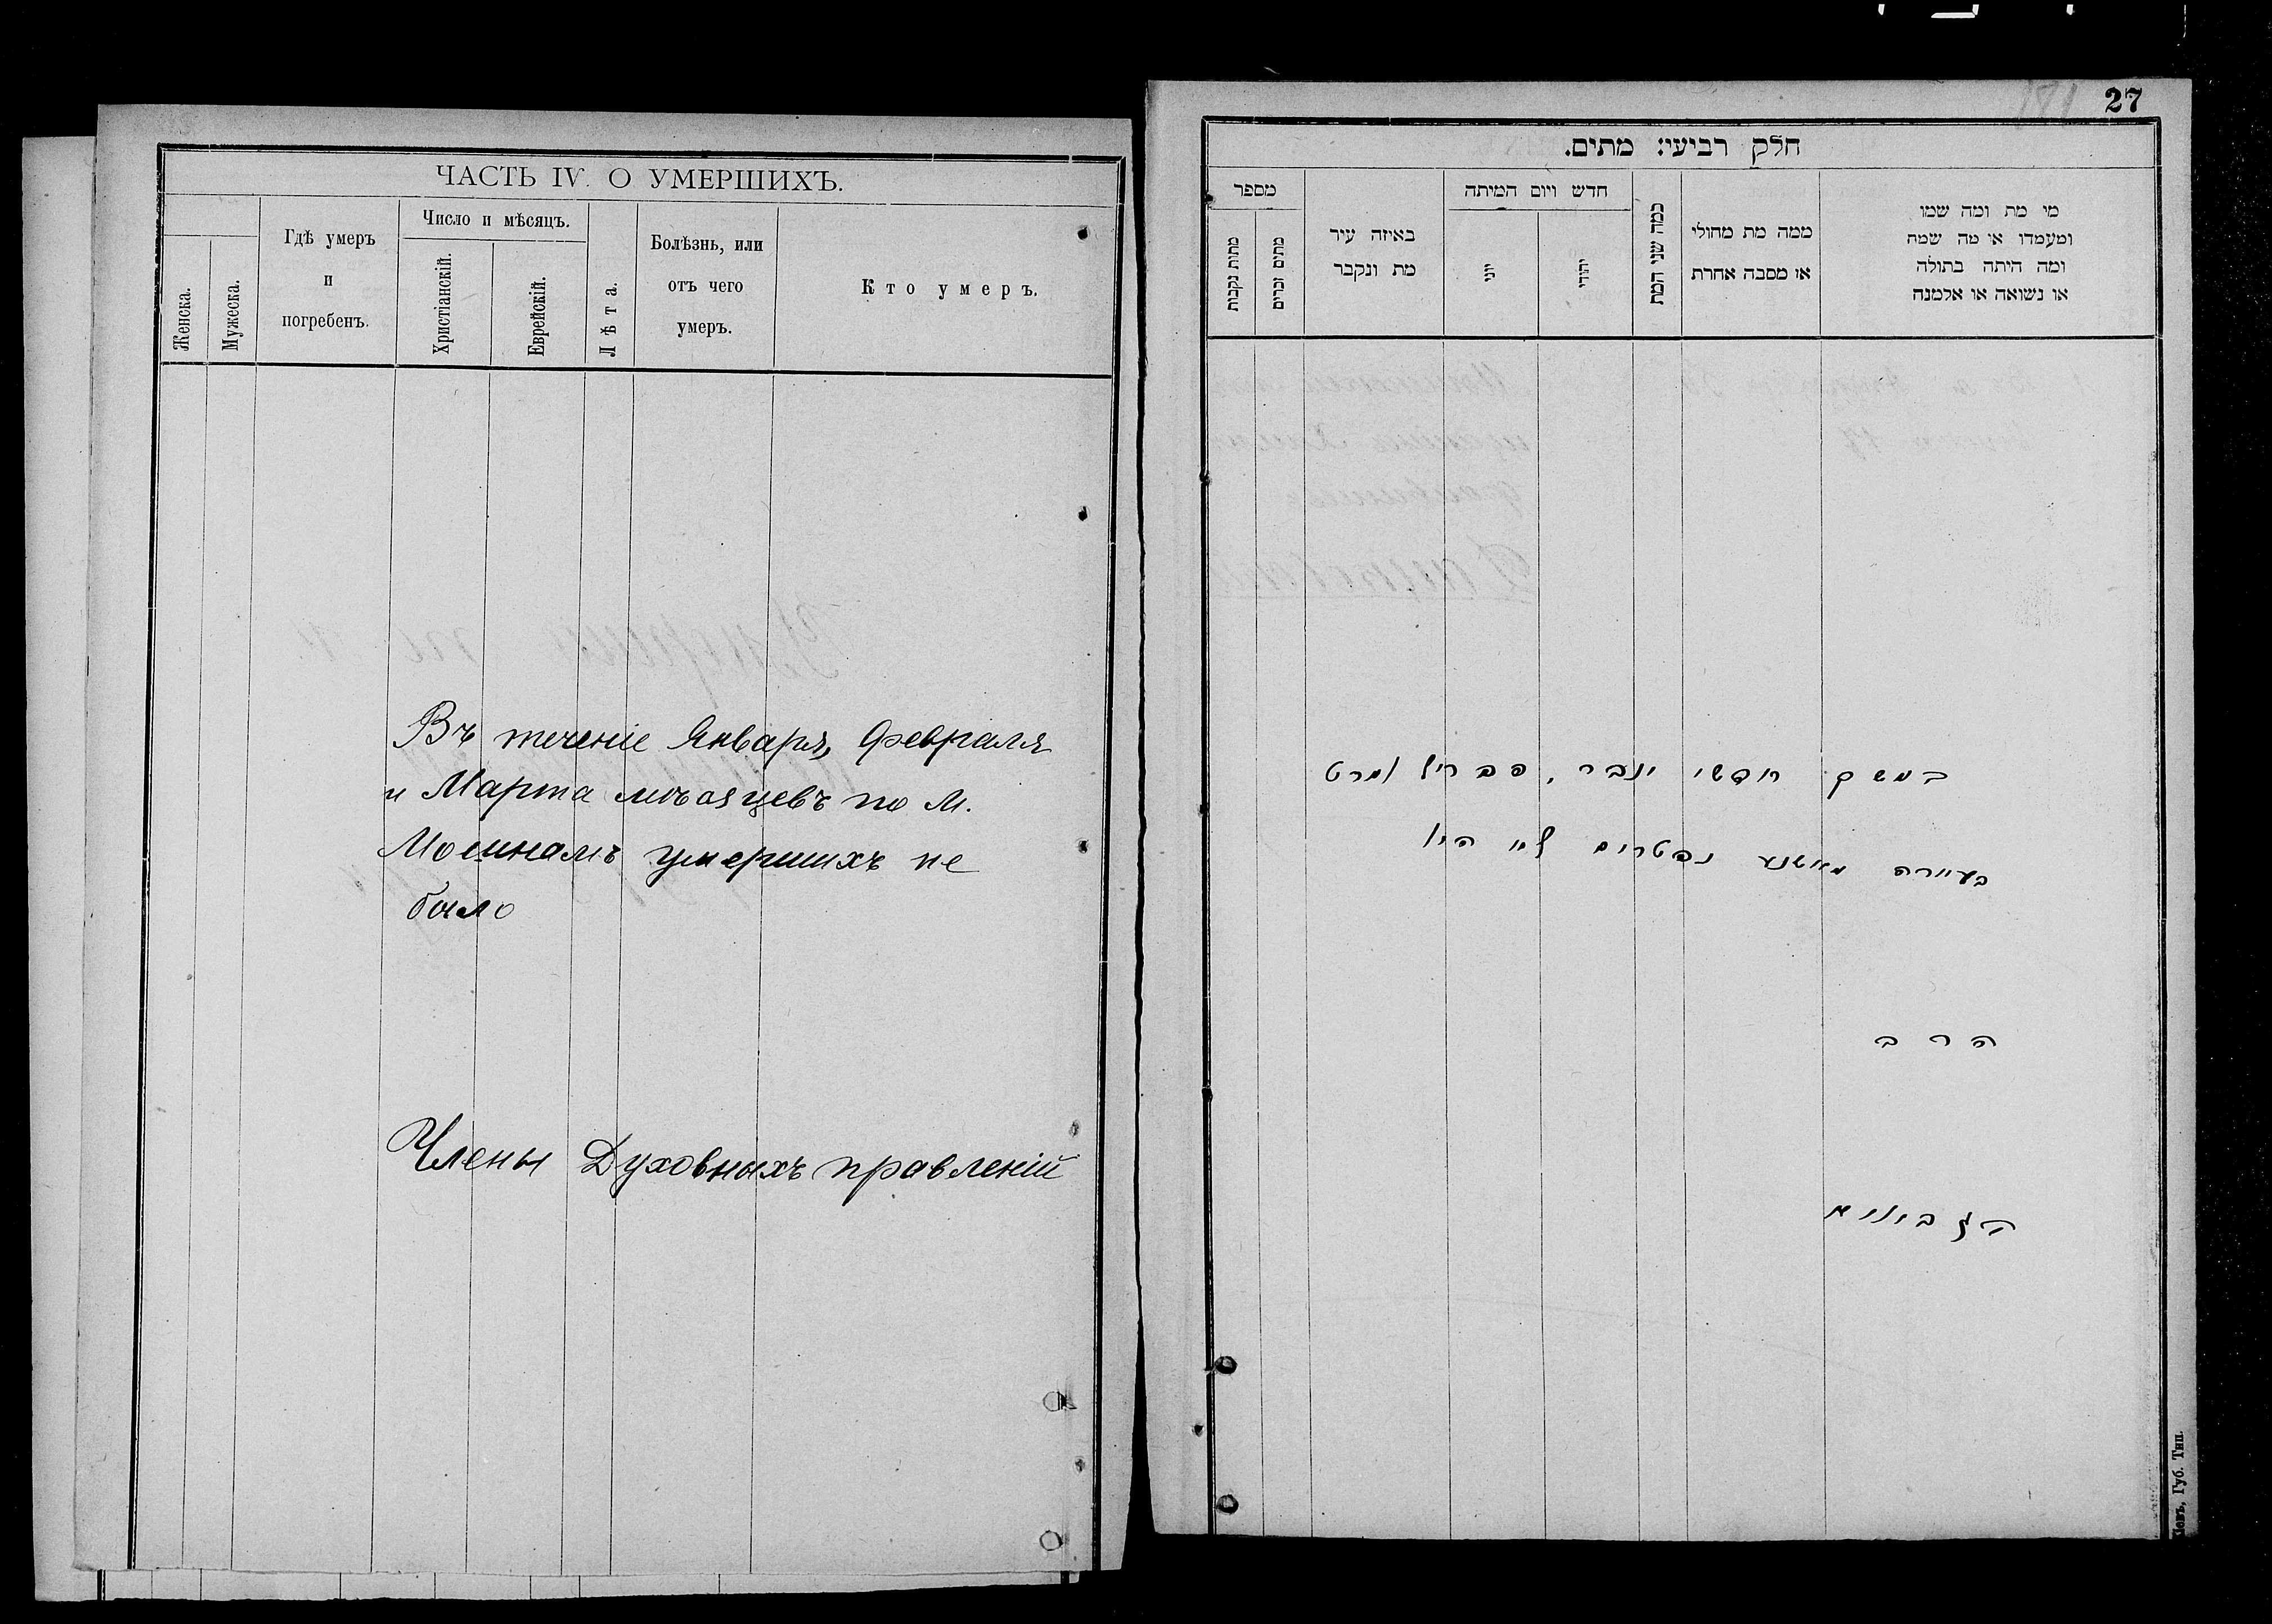 ЧАСТЬ IV. О УМЕРШИХЪ.
Женска.
Мужеска.
Гдѣ умеръ
и
погребенъ.
Число и мѣсяцъ.
Христіанскій.
Еврейскій.
Лѣта.
Болѣзнь, или
отъ чего
умеръ.
Кто умеръ.
Въ теченіе Января, Февраля
и Марта мѣсяцевъ по М.
умершихъ не
было
Члены Духовныхъ правленій
27
181
חלק רביעי: מתים.
מספר
מתות נקבות
מתים זכרים
באיזה עיר
מת ונקבר
חדש ויום המיתה
יוני
יהודי
כמה שני המת
ממה מת מחולי
או מסבה אחרת
מי מת ומה שמו
ומעמדו או מה שמה
ומה היתה בתולה
או נשואה או אלמנה
במשך חדשי ינבר, פבריל ומרט
בעיירה נפטרים לא היו
הרב
הגבאים
Губ. Тип.